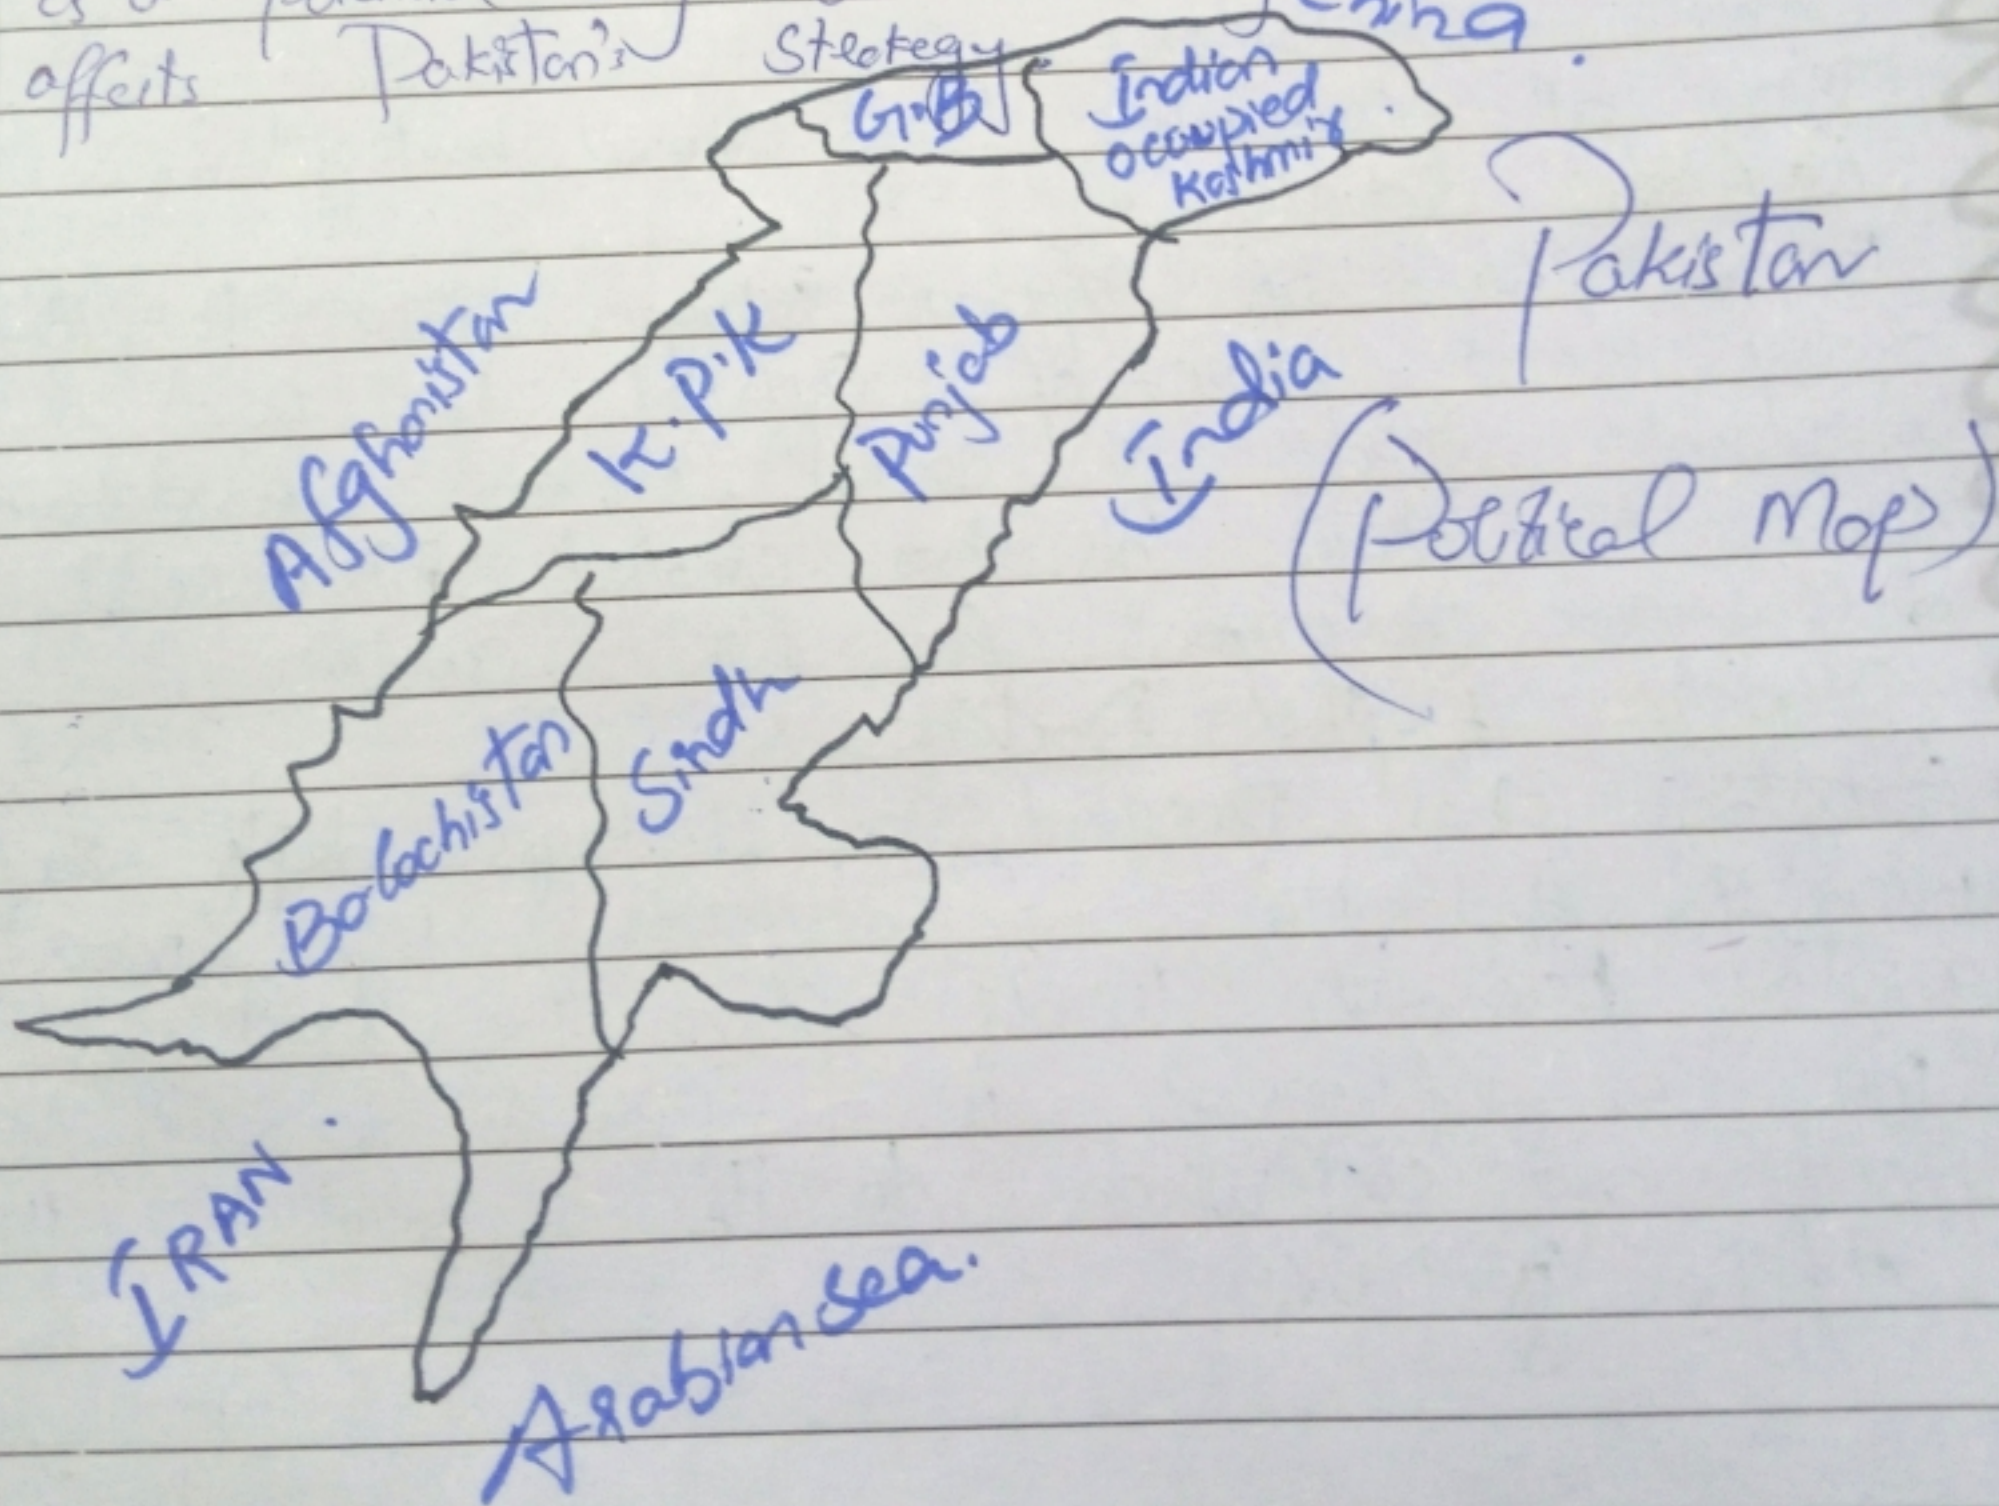 as a
affects Pakistan's Strategy
China.
G.B
Indian
occupied
Kashmir
Pakistan
(Political Map)
Afghanistan
K.P.K
Punjab
India
Balochistan
Sindh
IRAN.
Arabian Sea.